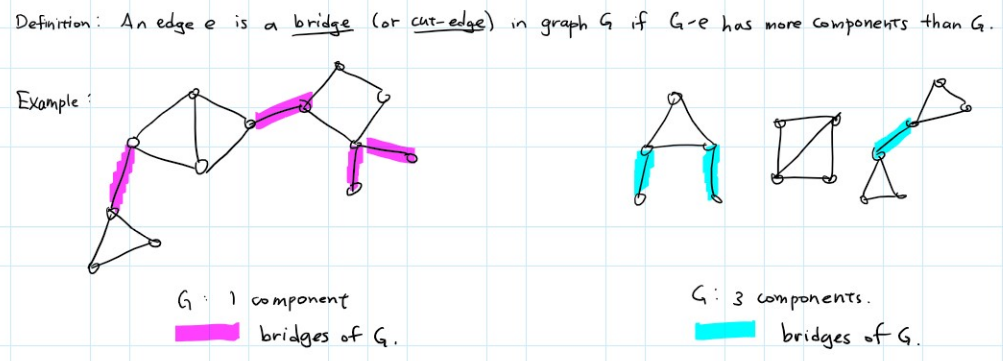 Definition: An edge e is a bridge (or cut-edge) in graph G if G-e has more components than G.
Example:
G: 1 component
bridges of G.
G: 3 components.
bridges of G.